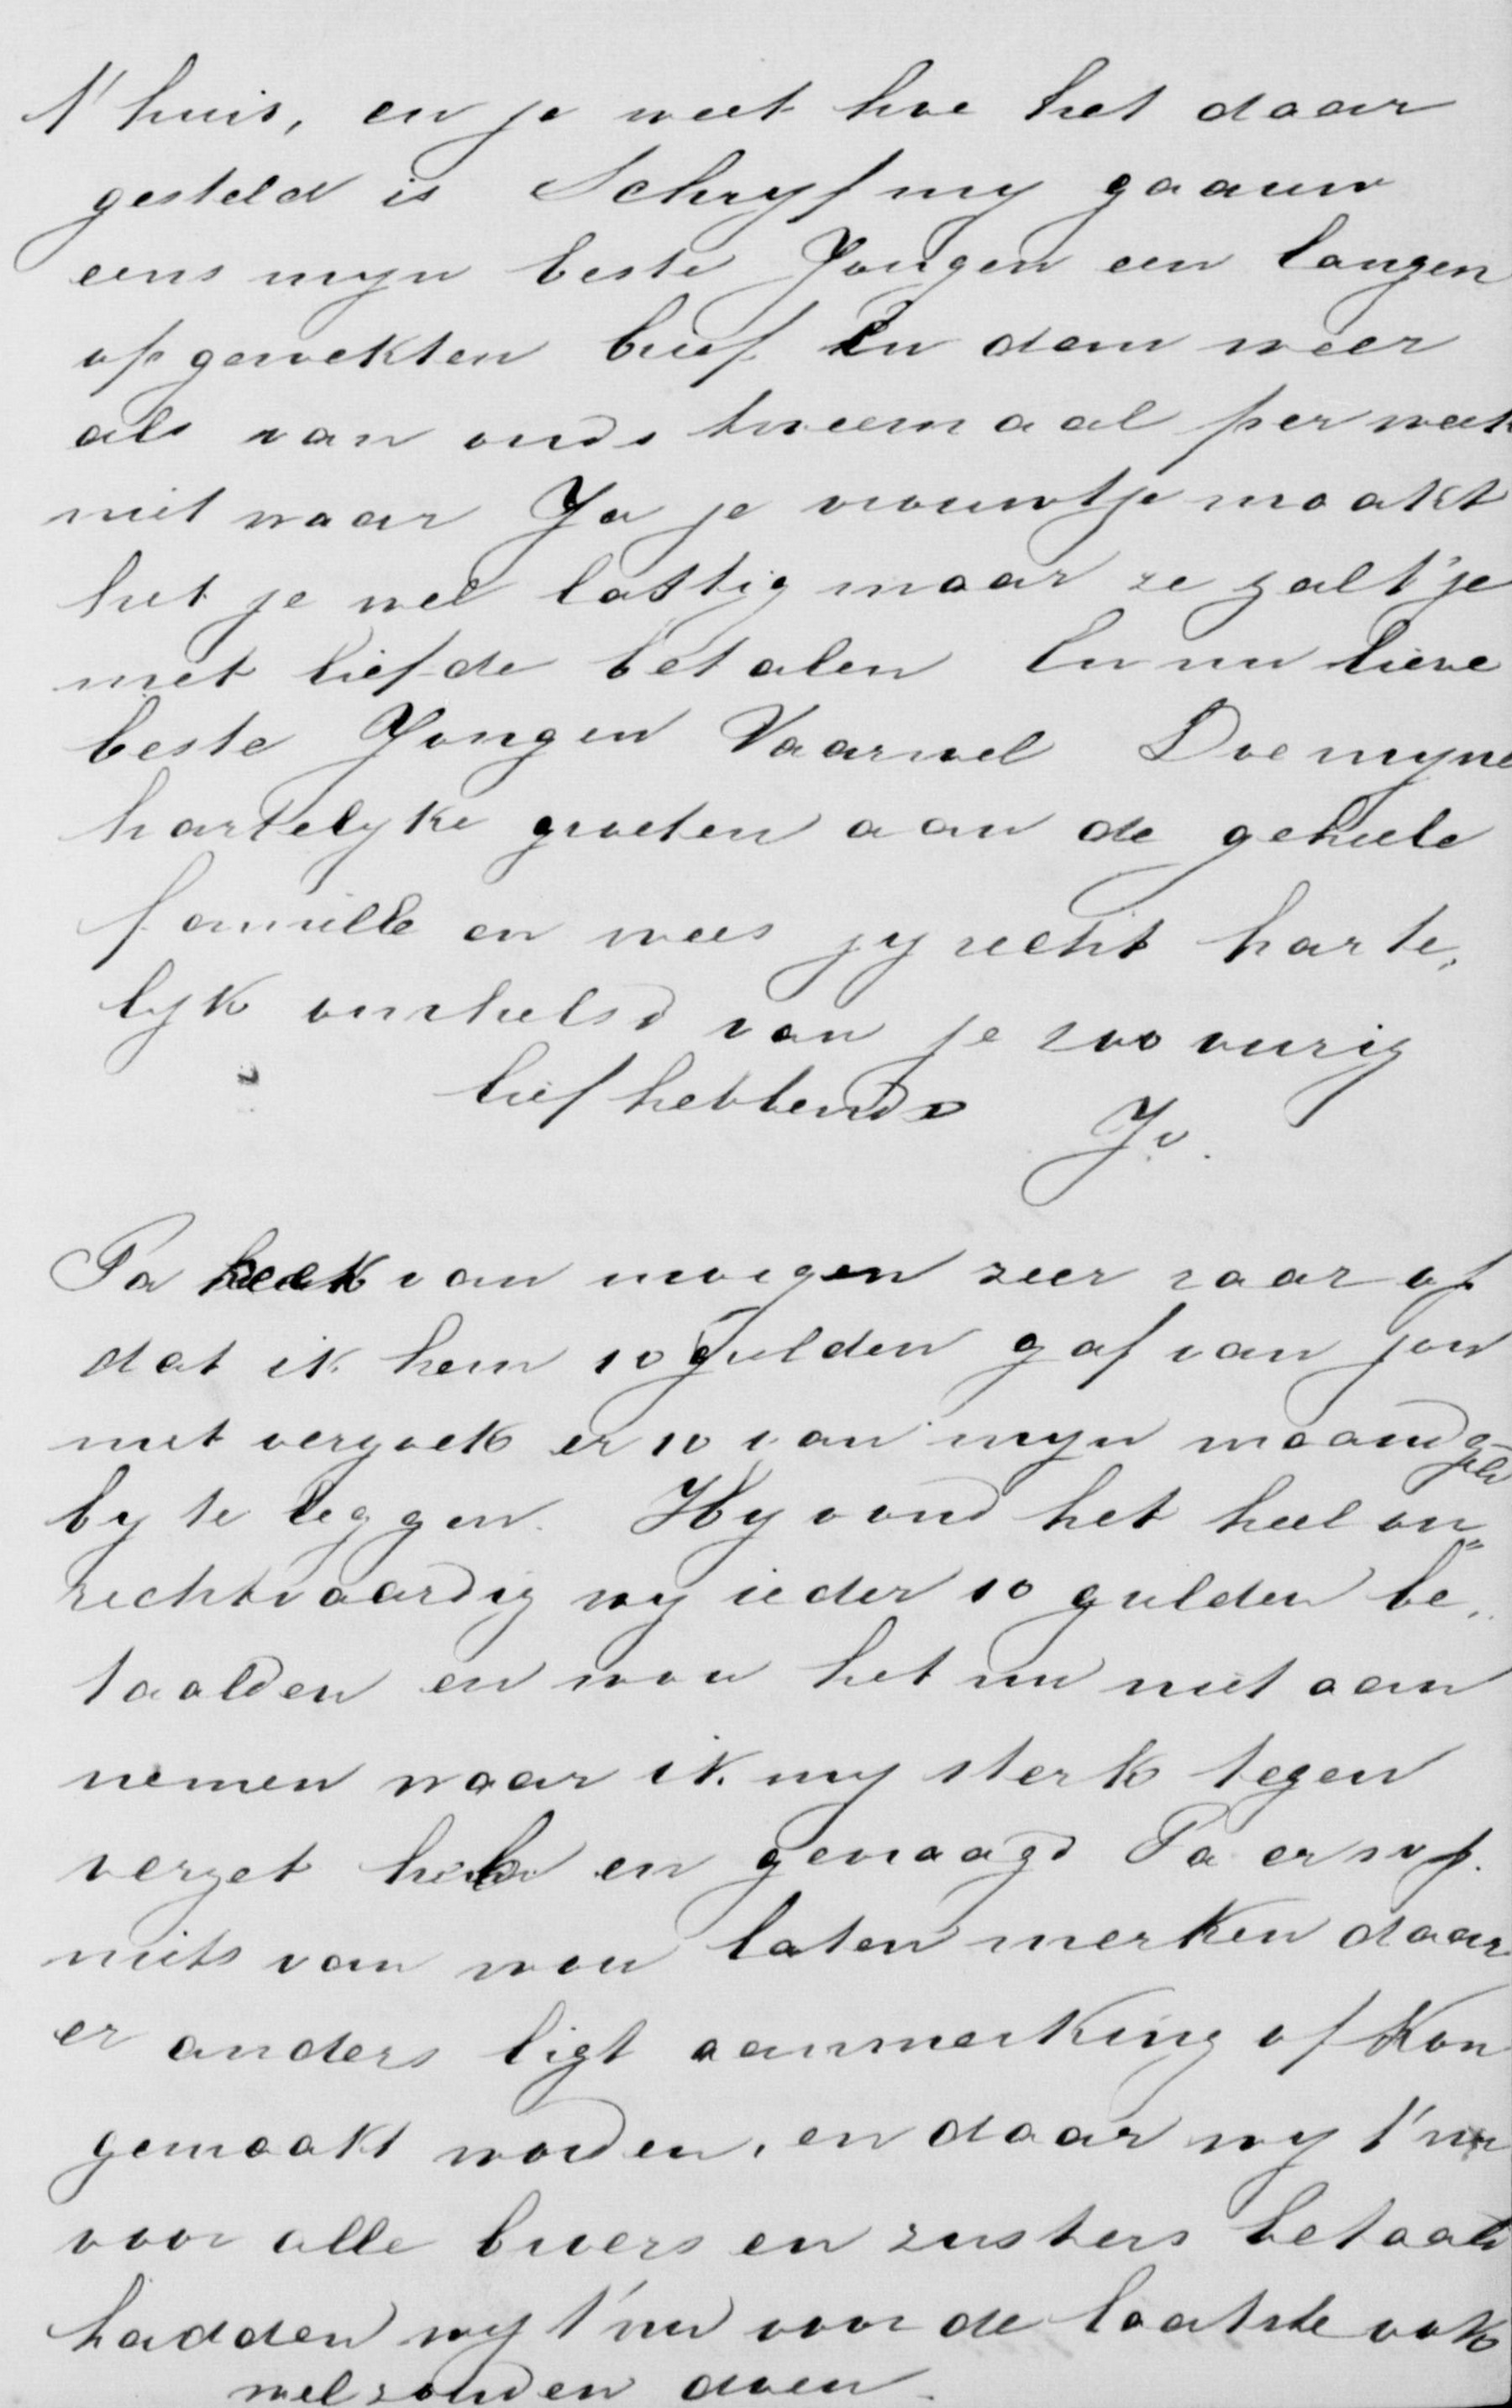 t'huis, en je weet hoe het daar
gesteld is Schryf my gaauw
eens myn beste Jongen een langen
opgewekten brief En dan weer
als van ouds tweemaal per week
niet waar Ja je vrouwtje maakt
het je wel lastig maar ze zal t'je
met liefde betalen En nu lieve
beste Jongen Vaarwel Doe myne
hartelyke groeten aan de geheele
famille en wees jy recht harte„
lyk omhelsd van je zoo vurig
liefhebbende Jo.
Pa keek van morgen zeer raar op
dat ik hem 10 gulden gaf van jou
met verzoek er 10 van myn maandgeld
by te leggen. Hy vond het heel on„
rechtvaardig wy ieder 10 gulden be„
taalden en wou het nu niet aan
nemen waar ik my sterk tegen
verzet heb en gevraagd Pa er svp.
niets van wou laten merken daar
er anders ligt aanmerking of kon
gemaakt worden, en daar wy t'nu
voor alle broers en zusters betaald
hadden wy t'nu voor de laatste ook
wel zouden doen.